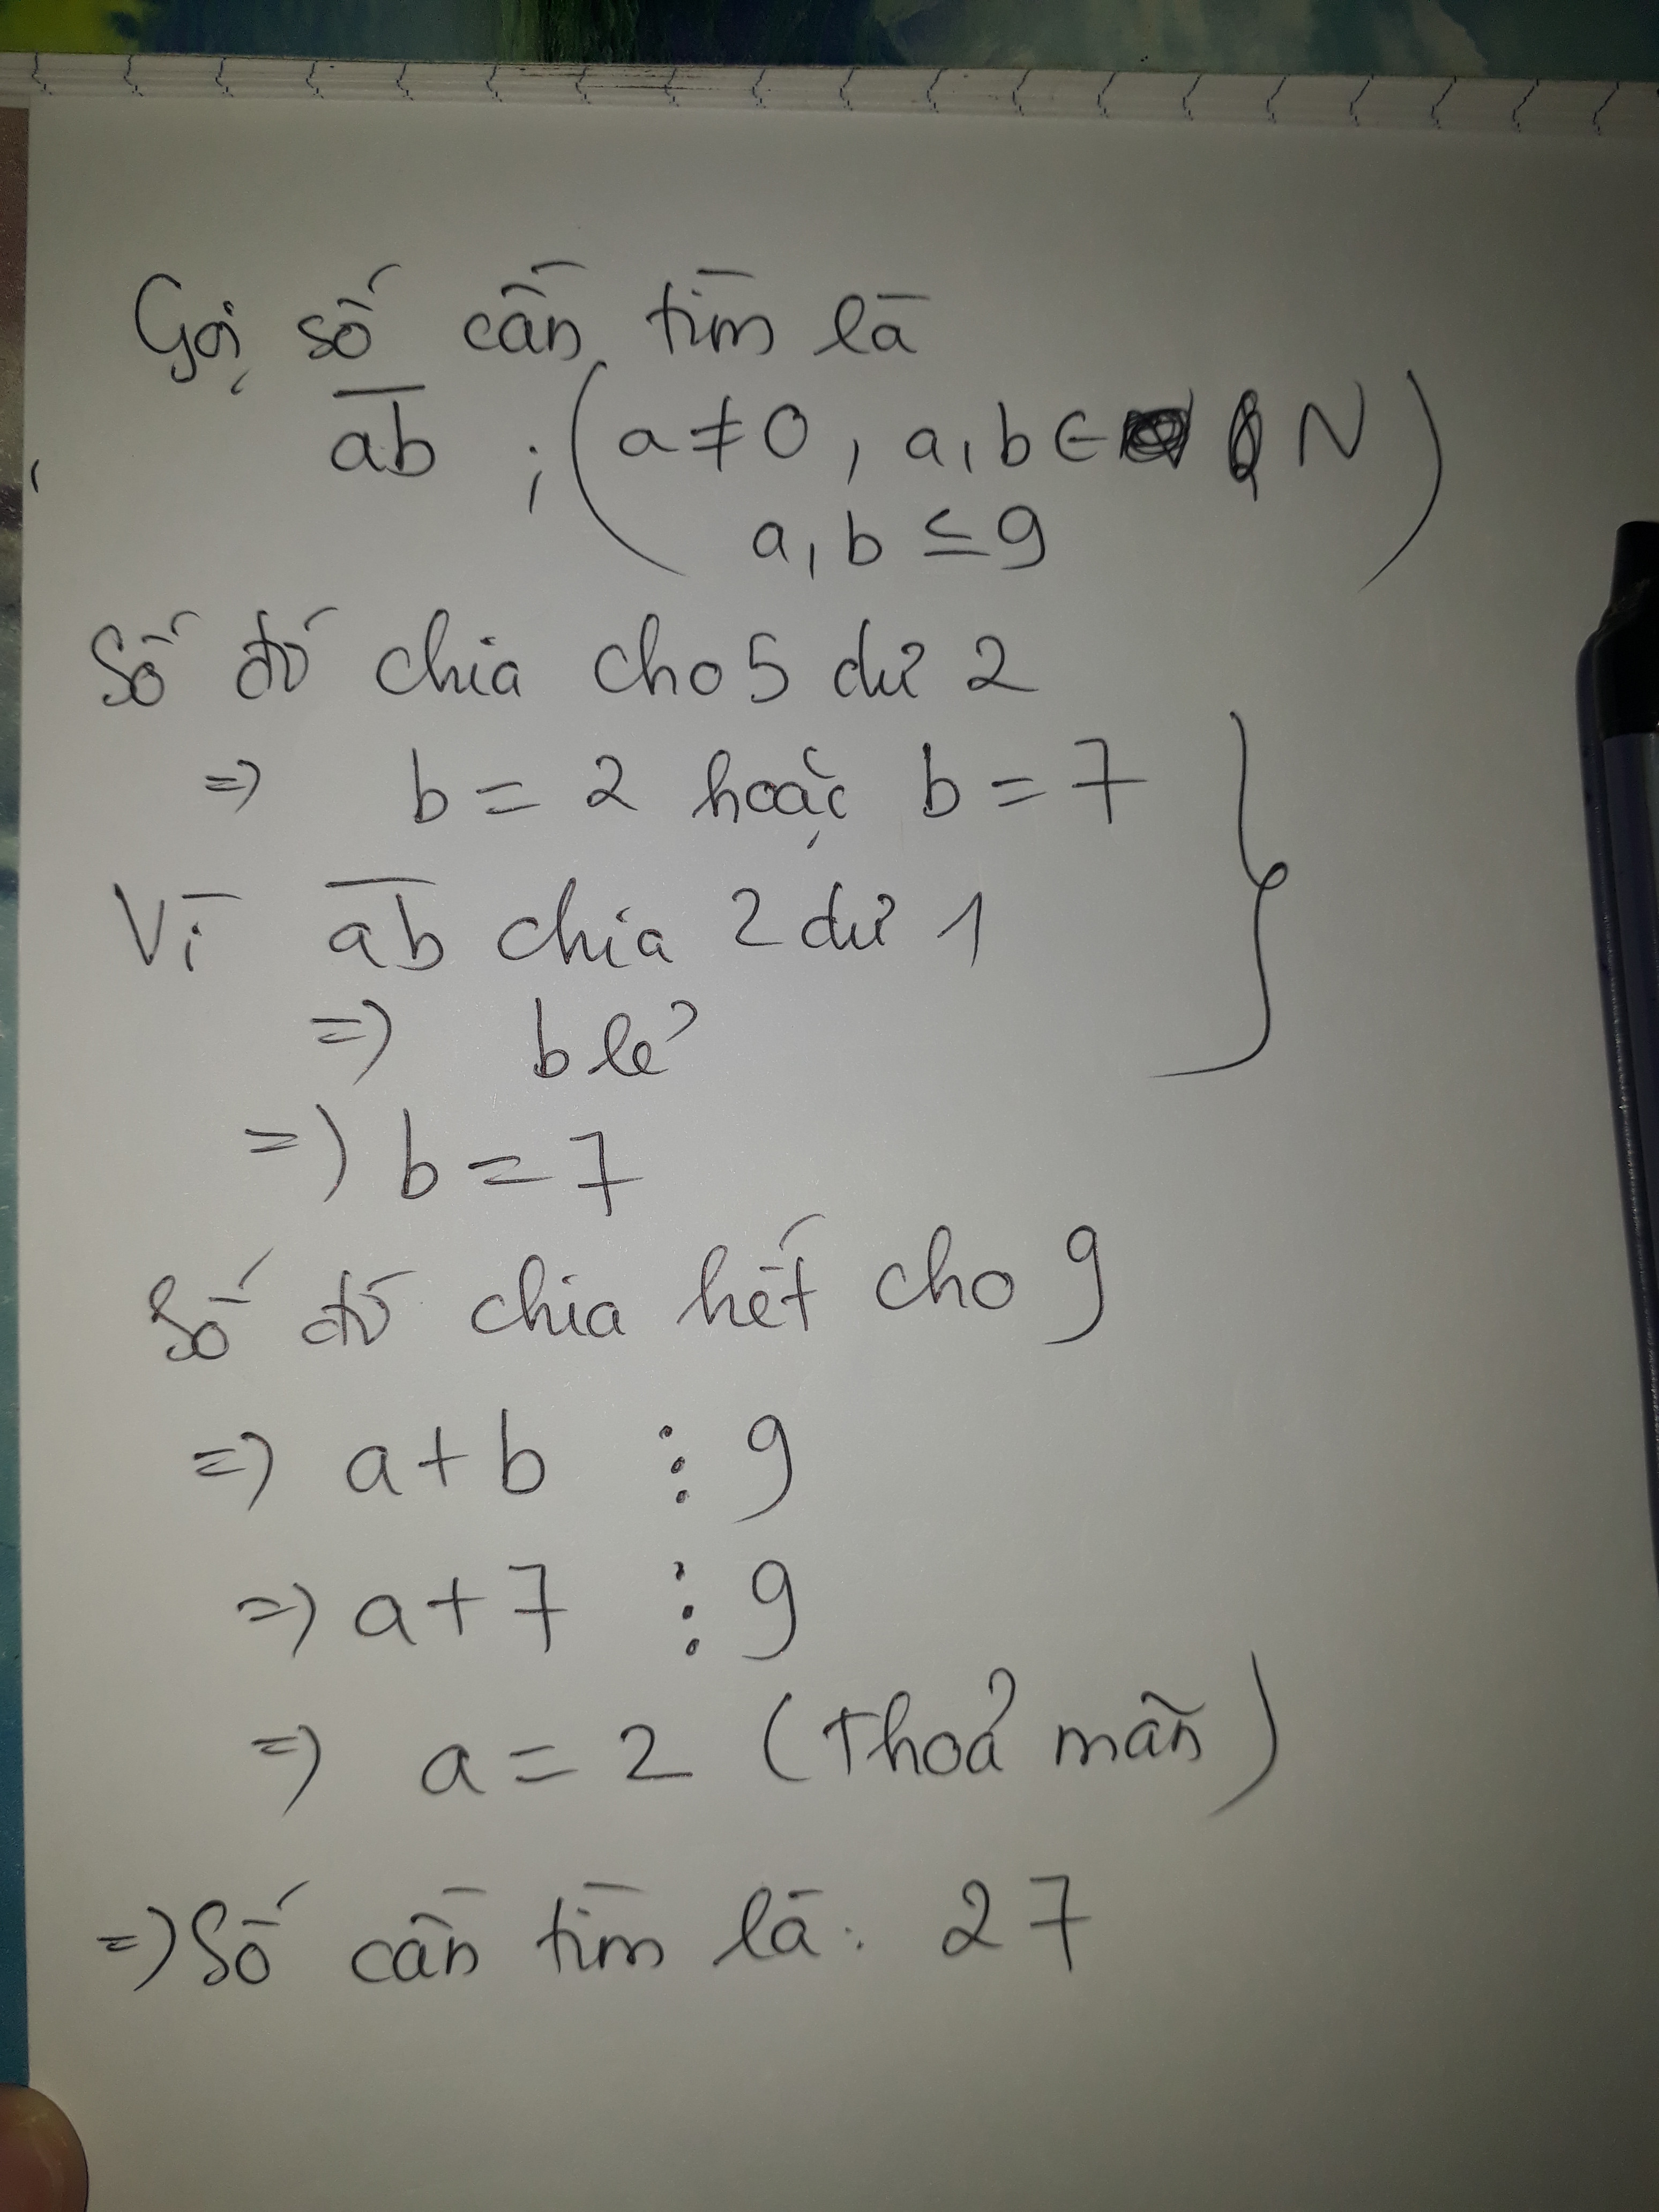 Gọi số cần tìm là
ab ; ( a ≠ 0, a, b ∈ N )
a, b ≤ 9
Số đó chia cho 5 dư 2
=> b = 2 hoặc b = 7
Vì ab chia 2 dư 1
=> b lẻ
=> b = 7
Số đó chia hết cho 9
=> a + b ⋮ 9
=> a + 7 ⋮ 9
=> a = 2 (Thoả mãn)
=> Số cần tìm là: 27